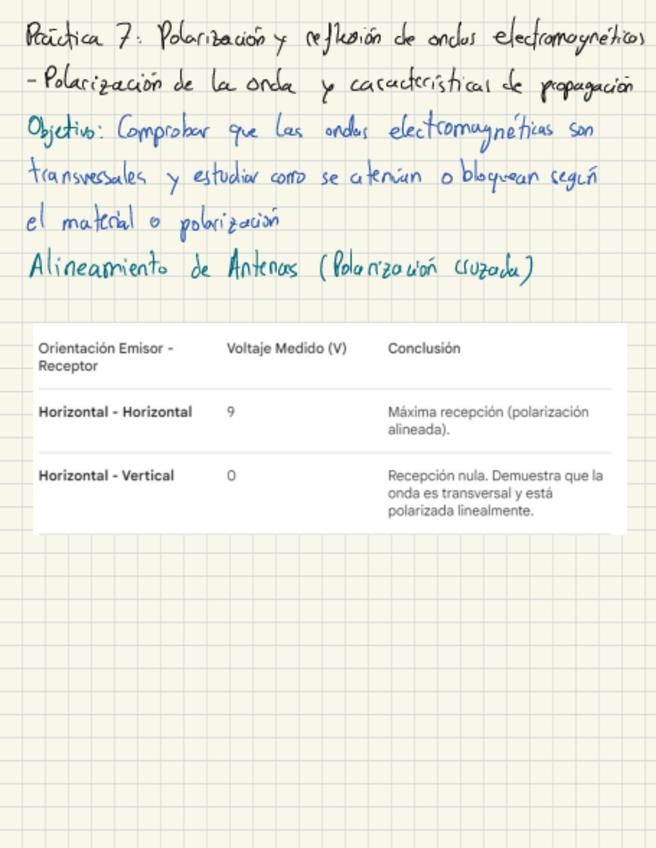 Práctica 7: Polarización y reflexión de ondas electromagnéticas
- Polarización de la onda y características de propagación
Objetivo: Comprobar que las ondas electromagnéticas son
transversales y estudiar como se atenúan o bloquean según
el material o polarización
Alineamiento de Antenas (Polarización cruzada)
Orientación Emisor - Receptor Voltaje Medido (V) Conclusión
Horizontal - Horizontal 9 Máxima recepción (polarización
alineada).
Horizontal - Vertical 0 Recepción nula. Demuestra que la
onda es transversal y está
polarizada linealmente.